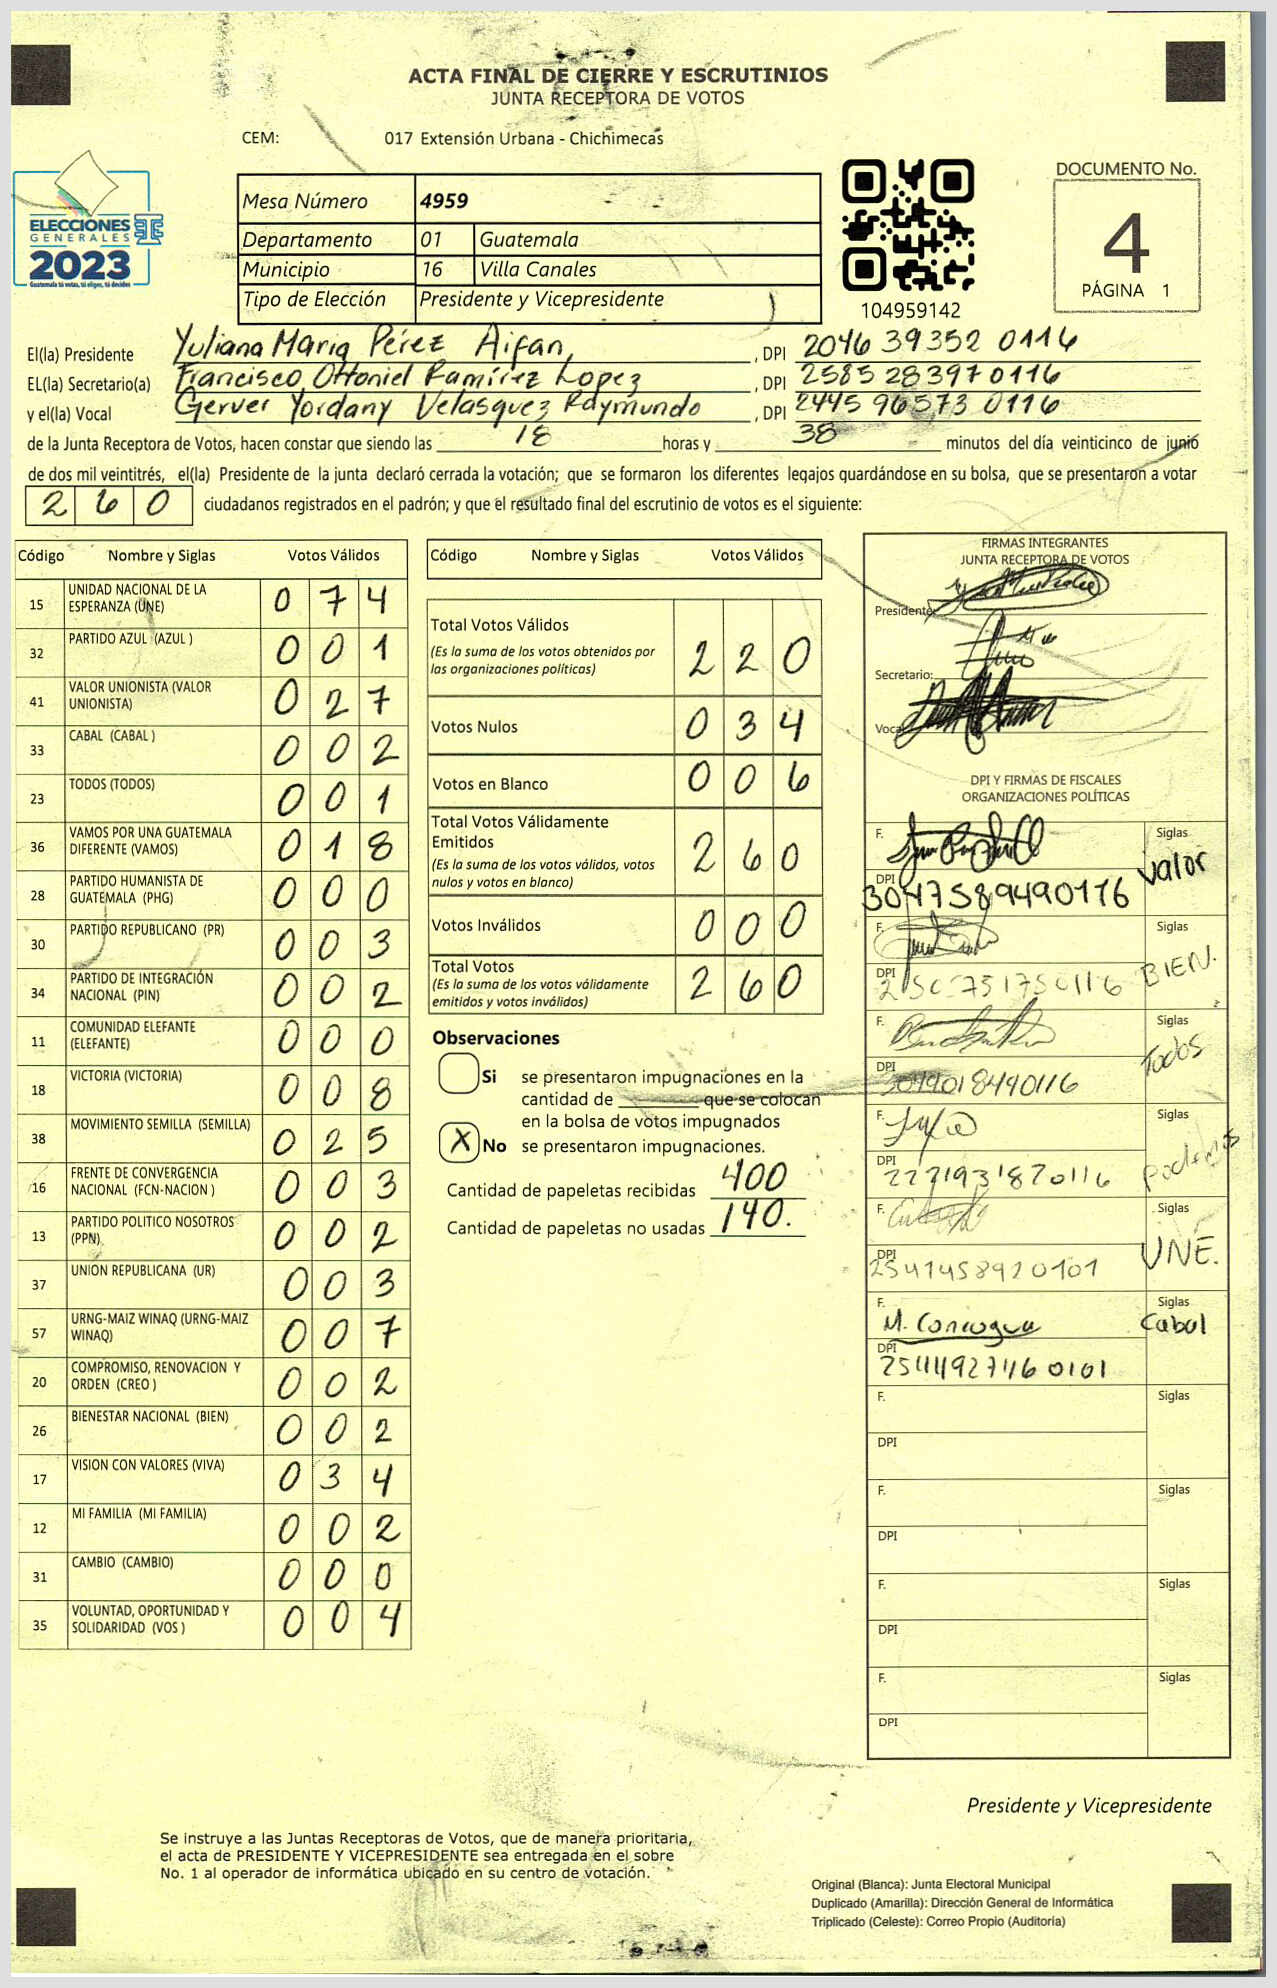 ACTA FINAL DE CIERRE Y ESCRUTINIOS
JUNTA RECEPTORA DE VOTOS
CEM: 017 Extensión Urbana - Chichimecas
ELECCIONES
GENERALES
2023
Guatemala tú votas, tú eliges, tú decides
Mesa Número 4959
Departamento 01 Guatemala
Municipio 16 Villa Canales
Tipo de Elección Presidente y Vicepresidente
104959142
DOCUMENTO No.
4
PÁGINA 1
El(la) Presidente Yuliana Maria Pérez Aifan, , DPI 2046 39352 0116
EL(la) Secretario(a) Francisco Ottoniel Ramírez Lopez , DPI 2585 28397 0116
y el(la) Vocal Gerver Yordany Velasquez Raymundo , DPI 2445 96573 0116
de la Junta Receptora de Votos, hacen constar que siendo las 18 horas y 38 minutos del día veinticinco de junio
de dos mil veintitrés, el(la) Presidente de la junta declaró cerrada la votación; que se formaron los diferentes legajos guardándose en su bolsa, que se presentaron a votar
260 ciudadanos registrados en el padrón; y que el resultado final del escrutinio de votos es el siguiente:
Código Nombre y Siglas Votos Válidos
15 UNIDAD NACIONAL DE LA ESPERANZA (UNE) 0 7 4
32 PARTIDO AZUL (AZUL ) 0 0 1
41 VALOR UNIONISTA (VALOR UNIONISTA) 0 2 7
33 CABAL (CABAL ) 0 0 2
23 TODOS (TODOS) 0 0 1
36 VAMOS POR UNA GUATEMALA DIFERENTE (VAMOS) 0 1 8
28 PARTIDO HUMANISTA DE GUATEMALA (PHG) 0 0 0
30 PARTIDO REPUBLICANO (PR) 0 0 3
34 PARTIDO DE INTEGRACIÓN NACIONAL (PIN) 0 0 2
11 COMUNIDAD ELEFANTE (ELEFANTE) 0 0 0
18 VICTORIA (VICTORIA) 0 0 8
38 MOVIMIENTO SEMILLA (SEMILLA) 0 2 5
16 FRENTE DE CONVERGENCIA NACIONAL (FCN-NACION ) 0 0 3
13 PARTIDO POLITICO NOSOTROS (PPN) 0 0 2
37 UNION REPUBLICANA (UR) 0 0 3
57 URNG-MAIZ WINAQ (URNG-MAIZ WINAQ) 0 0 7
20 COMPROMISO, RENOVACION Y ORDEN (CREO ) 0 0 2
26 BIENESTAR NACIONAL (BIEN) 0 0 2
17 VISION CON VALORES (VIVA) 0 3 4
12 MI FAMILIA (MI FAMILIA) 0 0 2
31 CAMBIO (CAMBIO) 0 0 0
35 VOLUNTAD, OPORTUNIDAD Y SOLIDARIDAD (VOS ) 0 0 4
Código Nombre y Siglas Votos Válidos
Total Votos Válidos 2 2 0
(Es la suma de los votos obtenidos por
las organizaciones políticas)
Votos Nulos 0 3 4
Votos en Blanco 0 0 6
Total Votos Válidamente
Emitidos 2 6 0
(Es la suma de los votos válidos, votos
nulos y votos en blanco)
Votos Inválidos 0 0 0
Total Votos 2 6 0
(Es la suma de los votos válidamente
emitidos y votos inválidos)
Observaciones
Si se presentaron impugnaciones en la
cantidad de que se colocan
en la bolsa de votos impugnados
X No se presentaron impugnaciones.
Cantidad de papeletas recibidas 400
Cantidad de papeletas no usadas 140.
FIRMAS INTEGRANTES
JUNTA RECEPTORA DE VOTOS
Presidente:
Secretario:
Vocal
DPI Y FIRMAS DE FISCALES
ORGANIZACIONES POLÍTICAS
F. Siglas Valor
DPI 3047589490116
F. Siglas BIEN.
DPI
F. Siglas Todos
DPI 3049018490116
F. Siglas Podemos
DPI 2221931870116
F. Siglas UNE.
DPI 2541458920101
F. Siglas Cabal
DPI
F. Siglas
DPI
F. Siglas
DPI
F. Siglas
DPI
F. Siglas
DPI
Presidente y Vicepresidente
Se instruye a las Juntas Receptoras de Votos, que de manera prioritaria,
el acta de PRESIDENTE Y VICEPRESIDENTE sea entregada en el sobre
No. 1 al operador de informática ubicado en su centro de votación.
Original (Blanca): Junta Electoral Municipal
Duplicado (Amarilla): Dirección General de Informática
Triplicado (Celeste): Correo Propio (Auditoría)